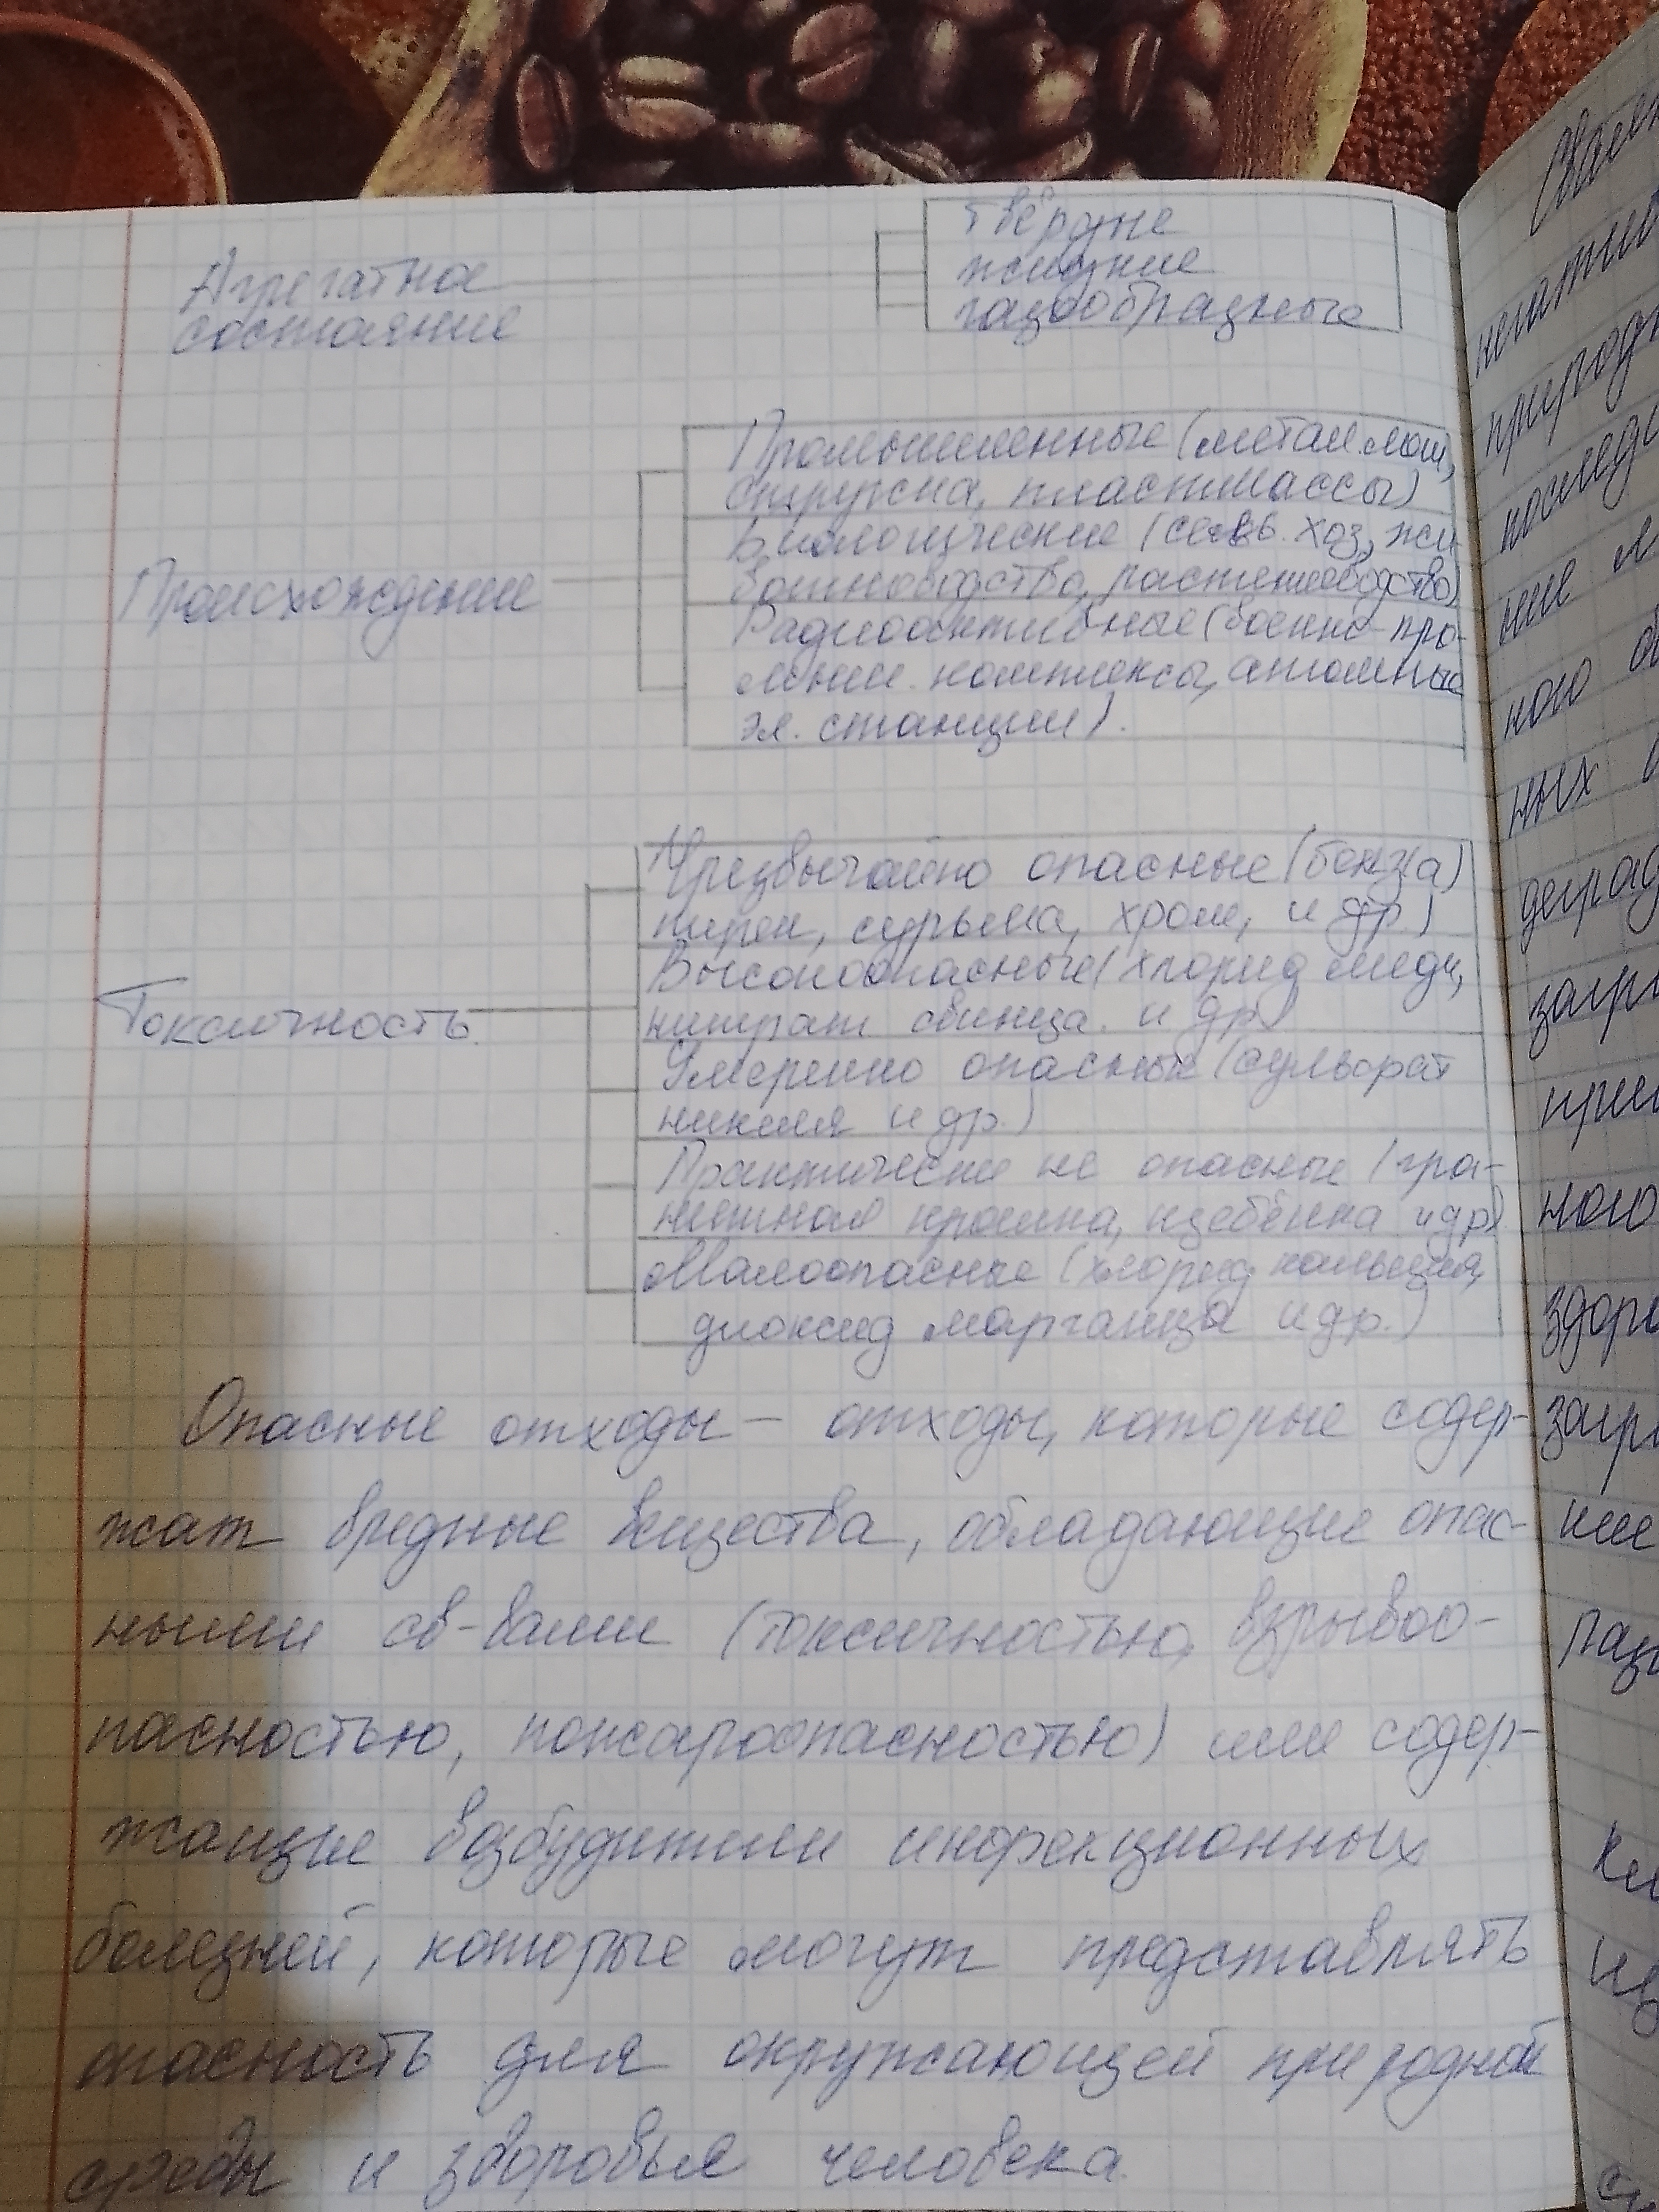 Агрегатное
состояние
твёрдые
жидкие
газообразные
Происхождение
Промышленные (метал. лом,
стружка, пластмассы)
Биологические (сельв. хоз, жи-
вотноводство, растениеводство)
Радиоактивные (военно-про-
мышл. комплексы, атомные
эл. станции).
Токсичность.
Чрезвычайно опасные (бенз(а)
пирен, сурьма, хром, и др.)
Высокоопасные (хлорид меди,
нитрат свинца и др)
Умеренно опасные (сульфат
никеля и др.)
Практически не опасные (гра-
нитная крошка, щебёнка и др)
Малоопасные (хлорид кальция,
диоксид марганца и др.)
Опасные отходы – отходы, которые содер-
жат вредные вещества, обладающие опас-
ными св-вами (токсичностью, взрывоо-
пасностью, пожароопасностью) или содер-
жащие возбудители инфекционных
болезней, которые могут представлять
опасность для окружающей природной
среды и здоровья человека.